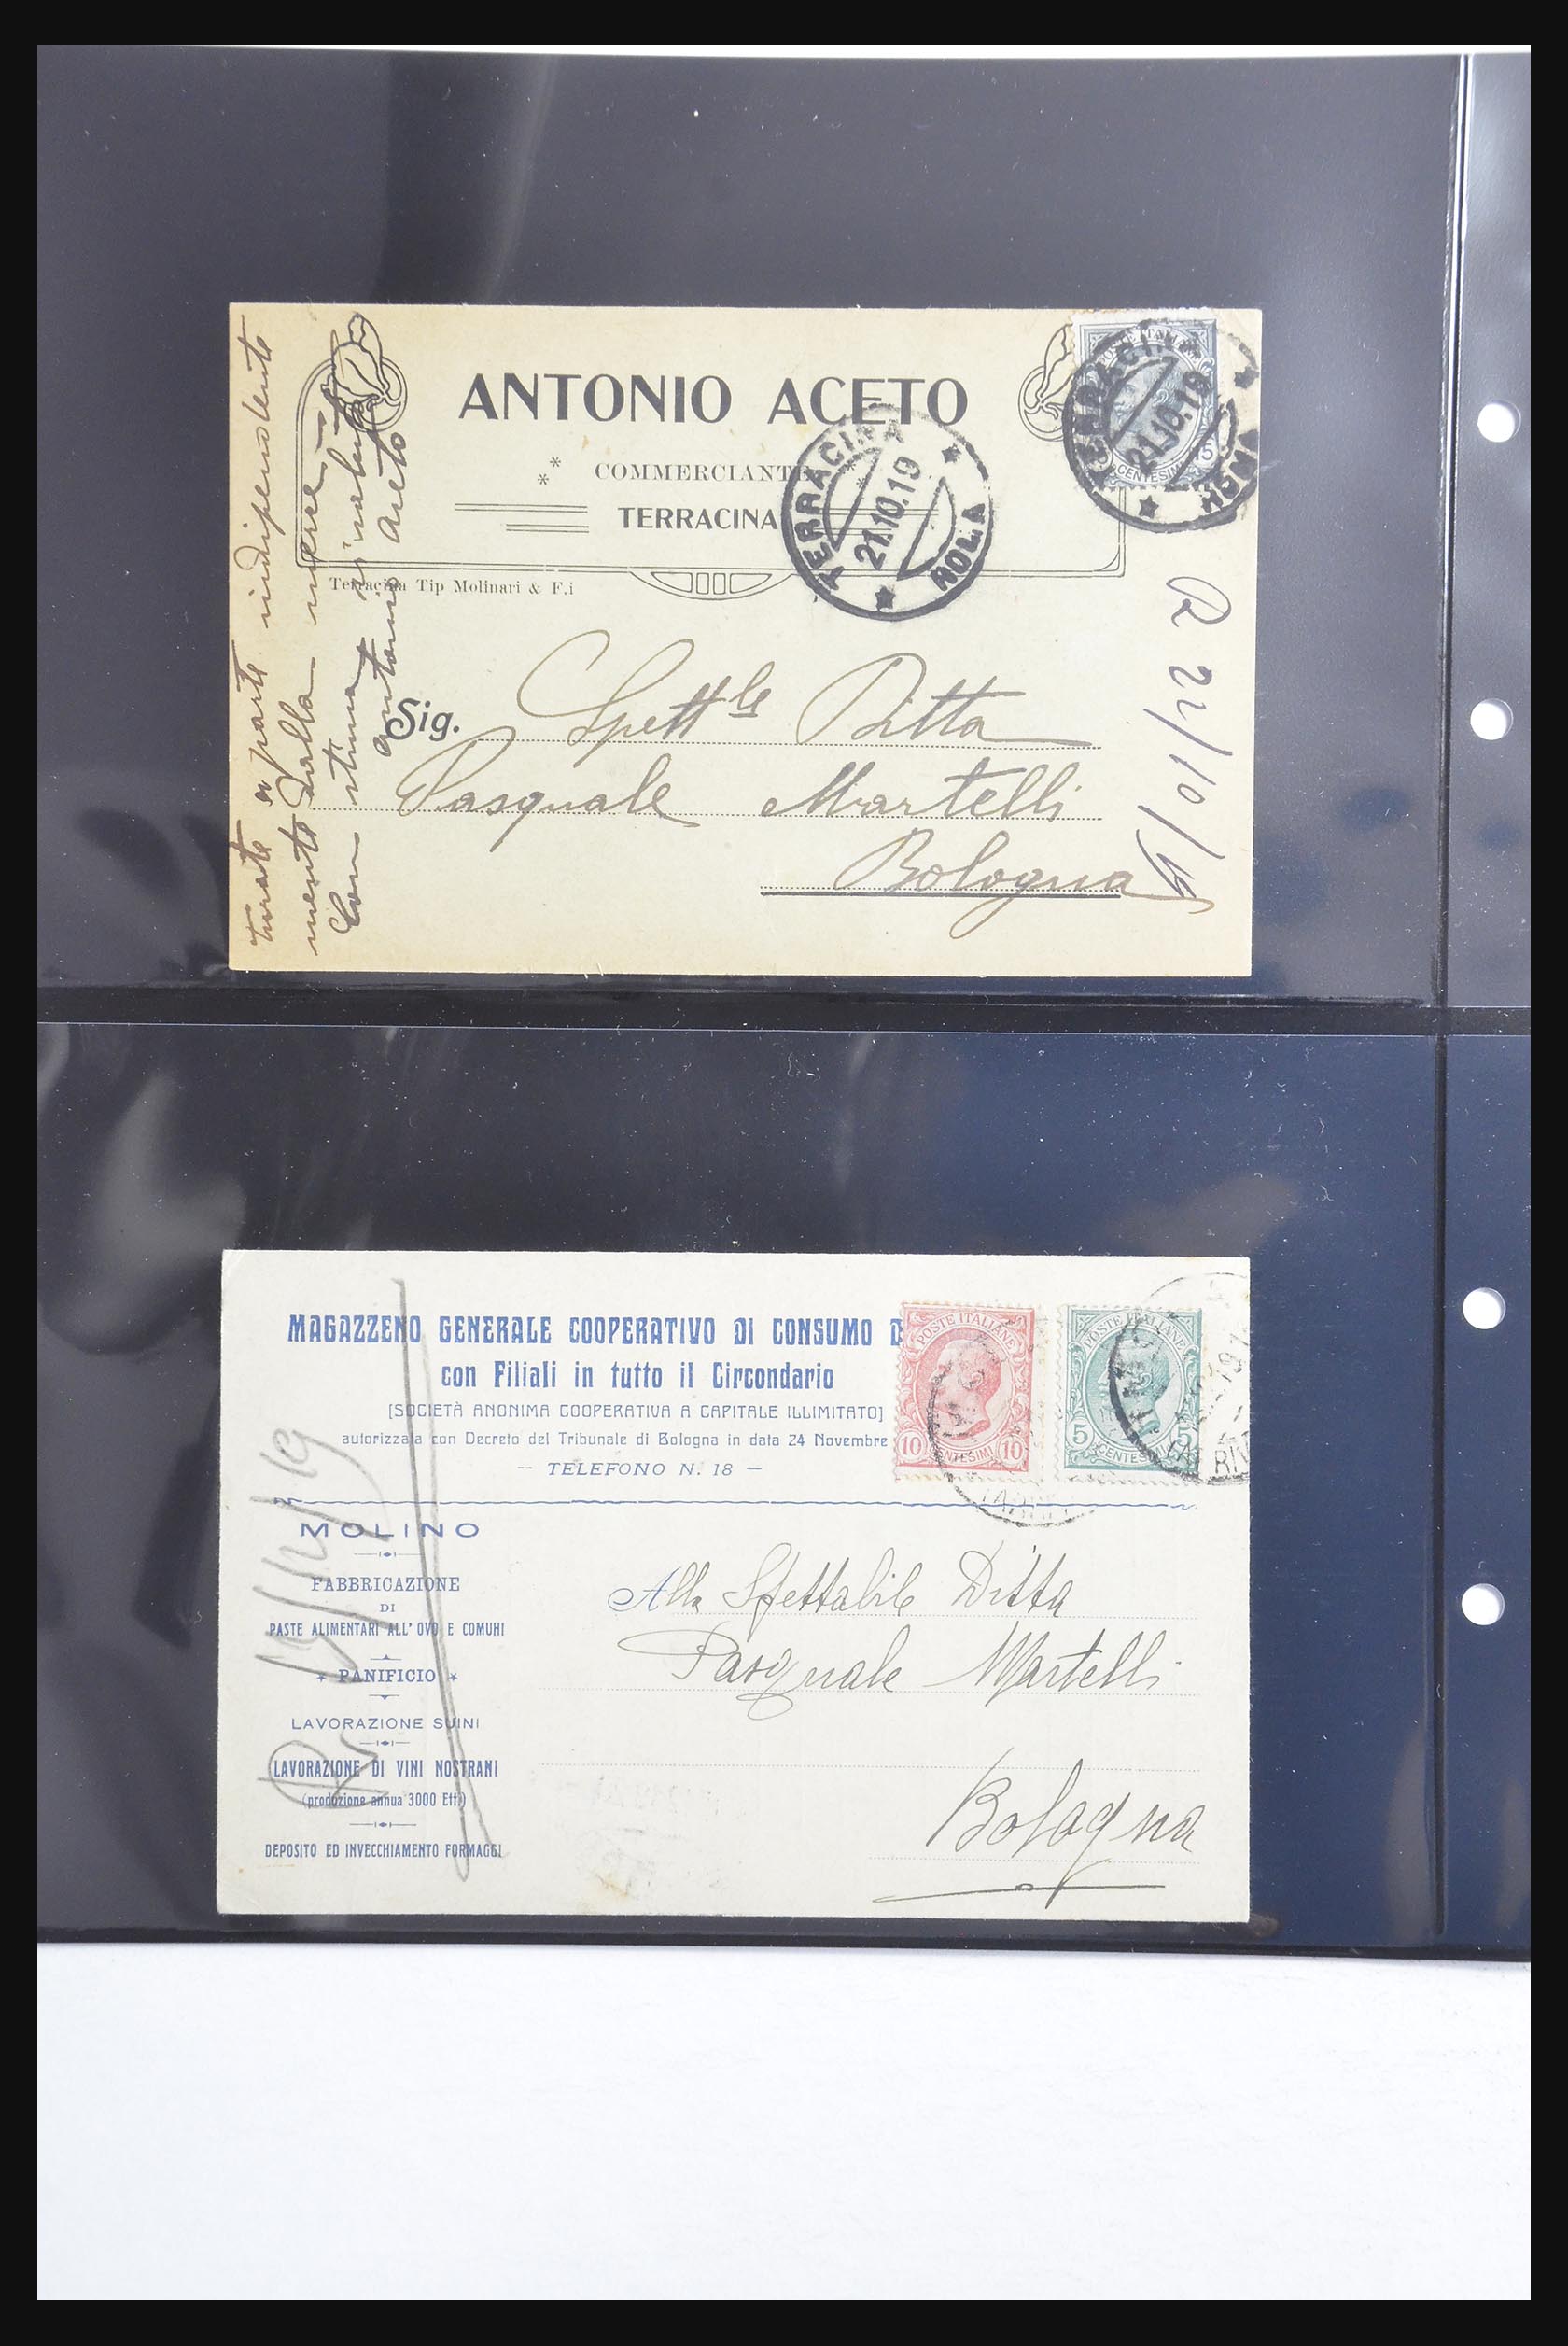 ANTONIO ACETO
COMMERCIANTE
TERRACINA
Terracina Tip Molinari & F.i
POSTE ITALIANE
15
CENTESIMI
TERRACINA
21.10.19
ROMA
TERRACINA
21.10.19
ROMA
Sig. Spett.le Ditta
Pasquale Martelli
Bologna
R 24/10/19
turate a parte indipendente
mente dalla merce
Con stima vi saluto
Antonio Aceto
MAGAZZENO GENERALE COOPERATIVO DI CONSUMO D
con Filiali in tutto il Circondario
[SOCIETÀ ANONIMA COOPERATIVA A CAPITALE ILLIMITATO]
autorizzata con Decreto del Tribunale di Bologna in data 24 Novembre
-- TELEFONO N. 18 —
POSTE ITALIANE
10 CENTESIMI 10
POSTE ITALIANE
5 CENTESIMI 5
MOLINO
FABBRICAZIONE
DI
PASTE ALIMENTARI ALL'OVO E COMUNI
* PANIFICIO *
LAVORAZIONE SUINI
LAVORAZIONE DI VINI NOSTRANI
(produzione annua 3000 Ett.)
DEPOSITO ED INVECCHIAMENTO FORMAGGI
Alla Spettabile Ditta
Pasquale Martelli
Bologna